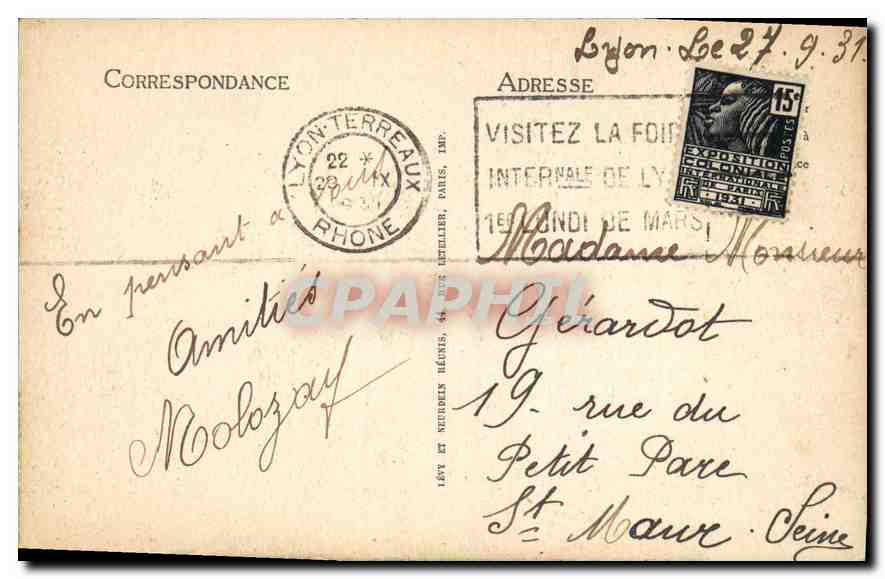 Lyon. Le 27.9.31.
CORRESPONDANCE
ADRESSE
15c
POSTES
EXPOSITION
COLONIALE
INTERNATIONALE
DE PARIS
1931
VISITEZ LA FOIR
INTERNALE DE LY
1ER LUNDI DE MARS
LYON-TERREAUX
22 *
IX
RHONE
En pensant à
Amitiés
Molozay
Madame Monsieur
Gérardot
19. rue du
Petit Parc
St Maur. Seine
LÉVY ET NEURDEIN RÉUNIS, 44, RUE LETELLIER, PARIS, IMP.
CPAPHIL